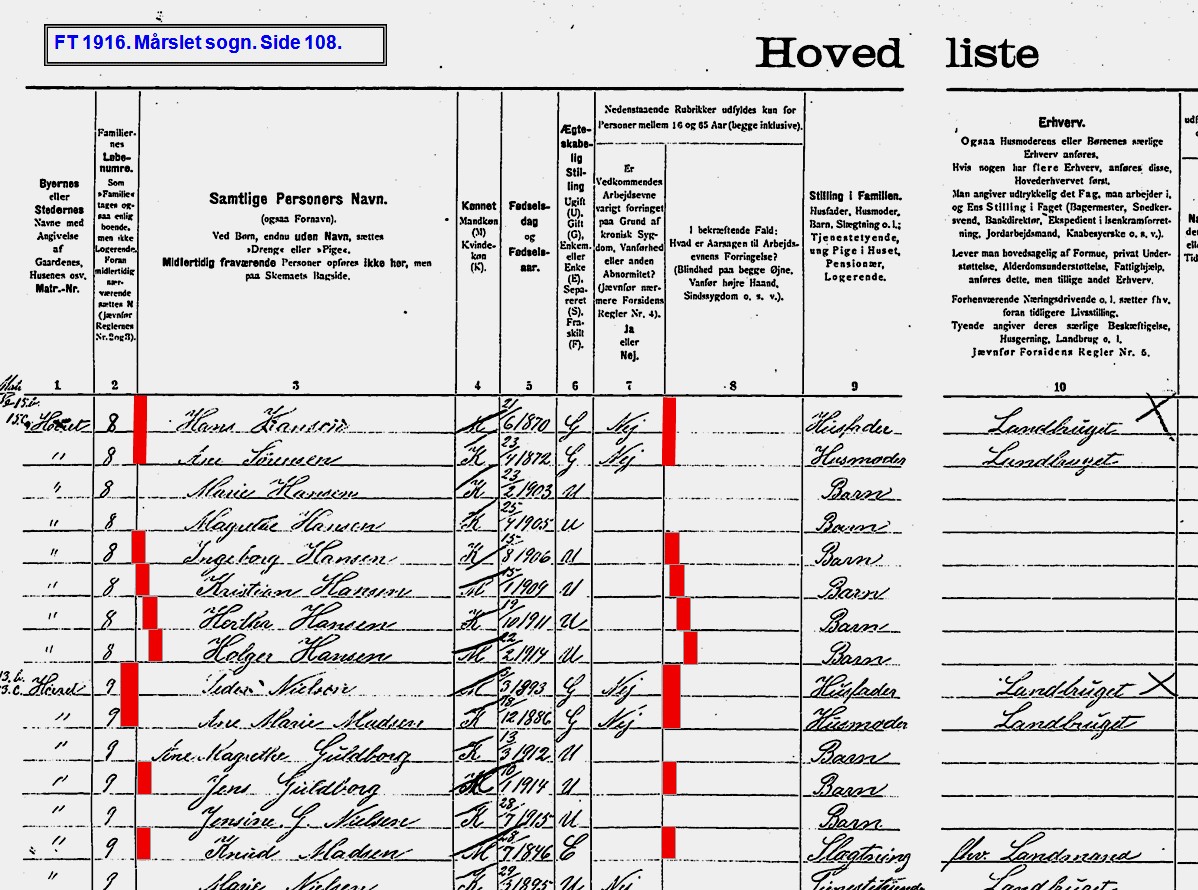 FT 1916. Mårslet sogn. Side 108.
Hoved liste
Byernes
eller
Stedernes
Navne med
Angivelse
af
Gaardenes,
Husenes osv.
Matr.-Nr.
Familier-
nes
Løbe-
numre.
Som
»Familie«
tages og-
saa enlig
boende,
men ikke
Logerende.
Foran
midlertidig
nær-
værende
sættes N
(Jævnfør
Reglernes
Nr. 2 og 3).
Samtlige Personers Navn.
(ogsaa Fornavn).
Ved Børn, endnu uden Navn, sættes
»Dreng« eller »Pige«.
Midlertidig fraværende Personer opføres ikke her, men
paa Skemaets Bagside.
Kønnet
Mandkøn
(M)
Kvinde-
køn
(K).
Fødsels-
dag
og
Fødsels-
aar.
Ægte-
skabe-
lig
Stil-
ling
Ugift
(U).
Gift
(G).
Enkem.
eller
Enke
(E).
Sepa-
reret
(S).
Fra-
skilt
(F).
Nedenstaaende Rubrikker udfyldes kun for
Personer mellem 16 og 65 Aar (begge inklusive).
Er
Vedkommendes
Arbejdsevne
varigt forringet
paa Grund af
kronisk Syg-
dom, Vanførhed
eller anden
Abnormitet?
(Jævnfør nær-
mere Forsidens
Regler Nr. 4).
Ja
eller
Nej.
I bekræftende Fald:
Hvad er Aarsagen til Arbejds-
evnens Forringelse?
(Blindhed paa begge Øjne,
Vanfør højre Haand,
Sindssygdom o. s. v.).
Stilling i Familien.
Husfader, Husmoder,
Barn, Slægtning o. l.;
Tjenestetyende,
ung Pige i Huset,
Pensionær,
Logerende.
Erhverv.
Ogsaa Husmoderens eller Børnenes særlige
Erhverv anføres.
Hvis nogen har flere Erhverv, anføres disse,
Hovederhvervet først.
Man angiver udtrykkelig det Fag, man arbejder i,
og Ens Stilling i Faget (Bagermester, Snedker-
svend, Bankdirektør, Ekspedient i Isenkramforret-
ning, Jordarbejdsmand, Knabesyerske o. s. v.).
Lever man hovedsagelig af Formue, privat Under-
støttelse, Alderdomsunderstøttelse, Fattighjælp,
anføres dette, men tillige andet Erhverv.
Forhenværende Næringsdrivende o. l. sætter fhv.
foran tidligere Livsstilling.
Tyende angiver deres særlige Beskæftigelse,
Husgerning, Landbrug o. l.
Jævnfør Forsidens Regler Nr. 5.
1 2 3 4 5 6 7 8 9 10
8 Hans Hansen M 21/6 1870 G Nej Husfader Landbruget
" 8 Ane Sørensen K 23/4 1872 G Nej Husmoder Landbruget
" 8 Marie Hansen K 23/2 1903 U Barn
" 8 Magrete Hansen K 25/4 1905 U Barn
" 8 Ingeborg Hansen K 15/8 1906 U Barn
" 8 Kristian Hansen M 15/1 1909 U Barn
" 8 Hertha Hansen K 19/10 1911 U Barn
" 8 Holger Hansen M 22/2 1914 U Barn
9 Peder Nielsen M 3 1893 G Nej Husfader Landbruget
" 9 Ane Marie Madsen K 18/12 1886 G Nej Husmoder Landbruget
" 9 Ane Magrethe Guldborg K 13/3 1912 U Barn
" 9 Jens Guldborg M 10/1 1914 U Barn
" 9 Jensine G. Nielsen K 28/7 1915 U Barn
" 9 Knud Madsen M 28/7 1846 E Slægtning fhv. Landmand
" 9 Marie Nielsen 29/3 1895 U Nej Tjenestetyende Landbruget